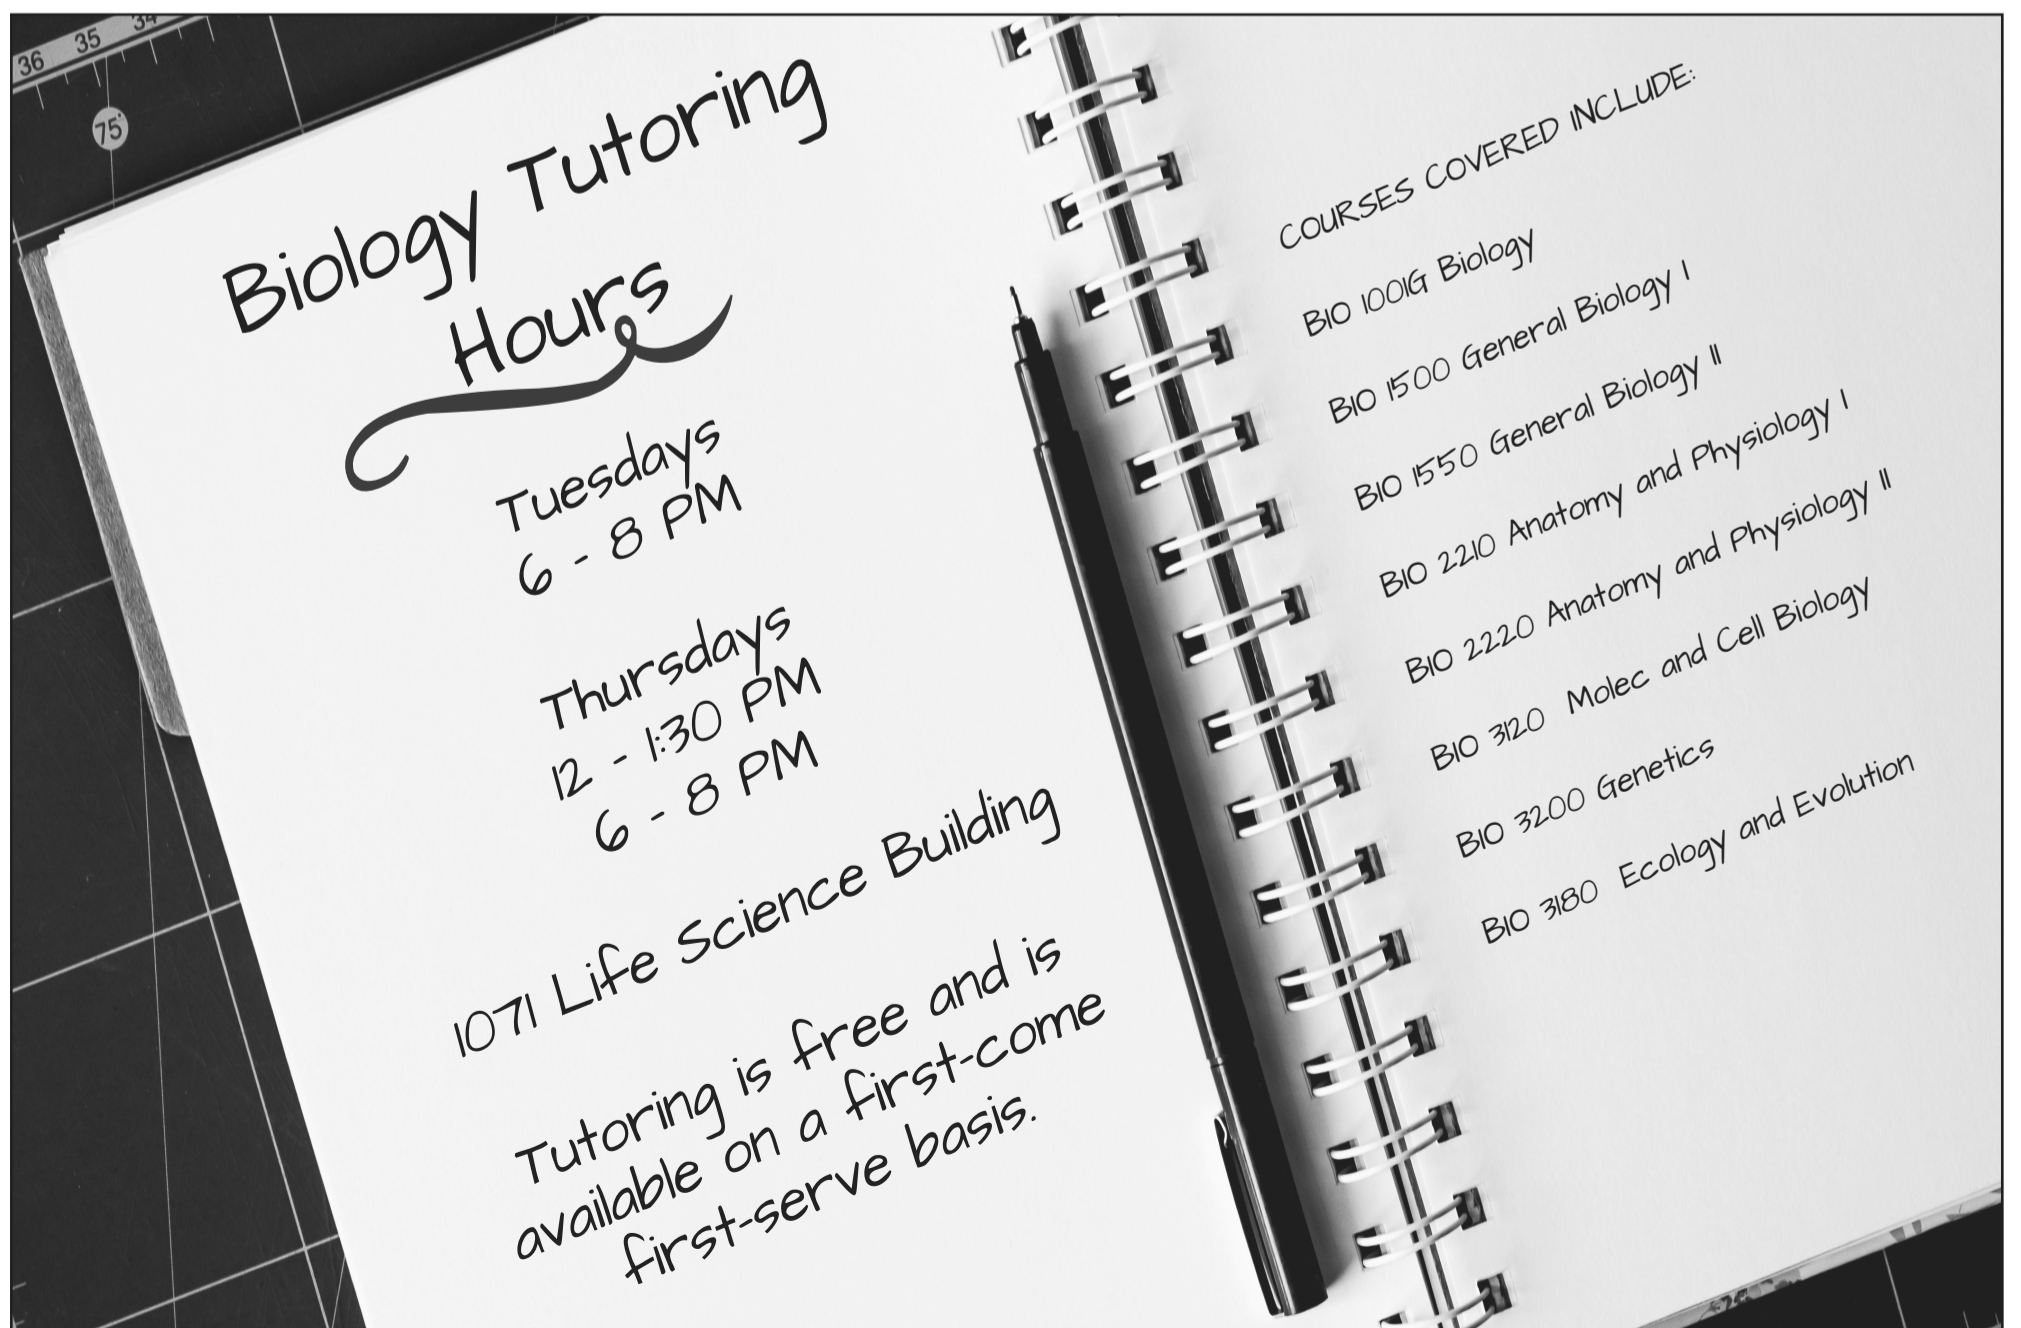 36 35 34
75°
Biology Tutoring
Hours
Tuesdays
6 - 8 PM
Thursdays
12 - 1:30 PM
6 - 8 PM
1071 Life Science Building
Tutoring is free and is
available on a first-come
first-serve basis.
COURSES COVERED INCLUDE:
BIO 1001G Biology
BIO 1500 General Biology I
BIO 1550 General Biology II
BIO 2210 Anatomy and Physiology I
BIO 2220 Anatomy and Physiology II
BIO 3120 Molec and Cell Biology
BIO 3200 Genetics
BIO 3180 Ecology and Evolution